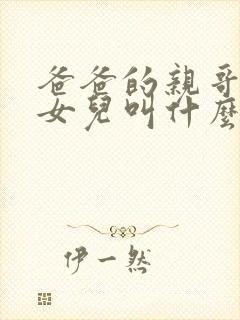 爸爸的親哥
女兒叫什麼
伊一然